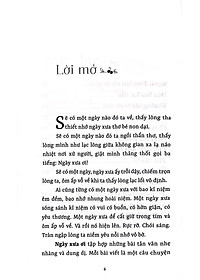 Lời mở
Sẽ có một ngày nào đó ta về, thấy lòng tha
thiết nhớ ngày xưa thơ bé non dạt.
Sẽ có một ngày nào đó ta ngồi thẩn thơ, thấy
lòng mình như lạc lõng giữa không gian xa lạ náo
nhiệt nơi xứ người, giật mình thảng thốt gọi ba
tiếng: Ngày xưa ơi!
Sẽ có một ngày, ngày xưa ấy trỗi dậy, chiếm trọn
tâm hồn ta, ôm ấp vỗ về khi ta thấy lòng lạc lối vô định.
Ai cũng từng có một ngày xưa với bao kỉ niệm
êm đềm, bao nhớ nhung hoài niệm. Một ngày xưa
sóng sánh kỉ niệm có vui có buồn, có hờn giận, có
yêu thương. Một ngày xưa để cất giữ trong tim và
ôm ấp vỗ về. Và rồi nó hiện lên. Rực rỡ. Chói sáng.
Tràn ngập lòng ta niềm nỗi nhớ vô bờ.
Ngày xưa ơi tập hợp những bài tản văn nhẹ
nhàng và dung dị. Mỗi bài viết là một câu chuyện